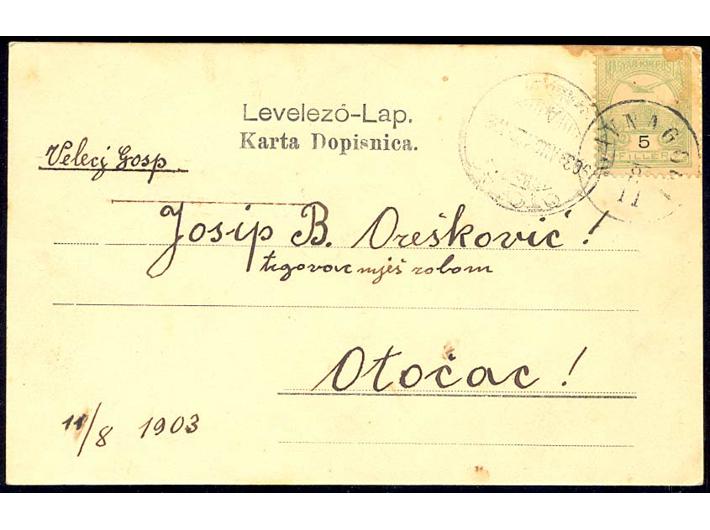 Levelező-Lap.
Karta Dopisnica.
MAGYAR KIR. POSTA
5
FILLÉR
Velecj Gosp
Josip B. Orešković!
trgovac mješ robom
Otočac!
11/8 1903